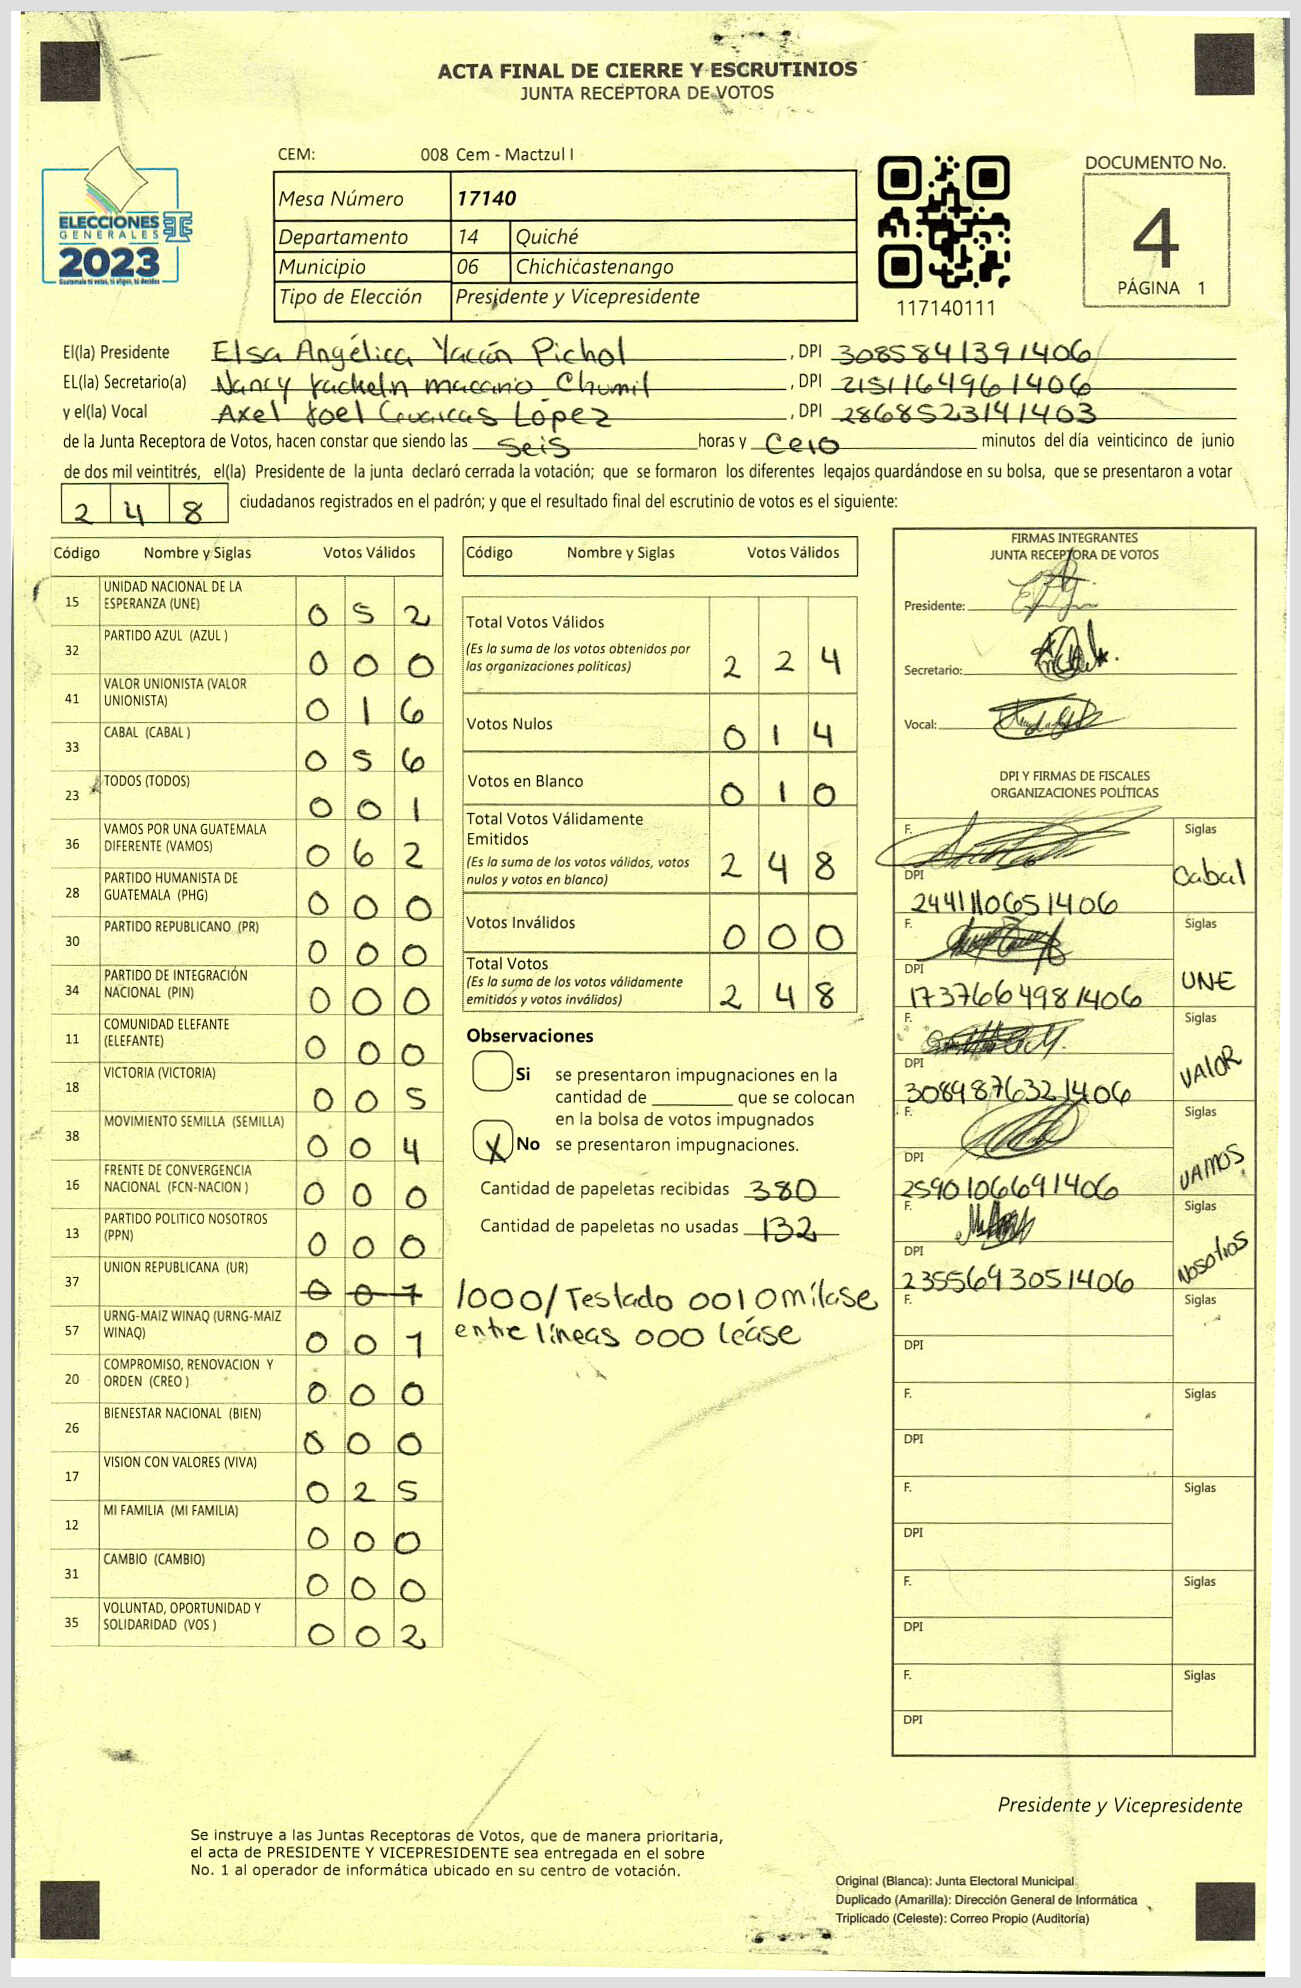 ACTA FINAL DE CIERRE Y ESCRUTINIOS
JUNTA RECEPTORA DE VOTOS
CEM: 008 Cem - Mactzul I
ELECCIONES
GENERALES
2023
Guatemala tú votas, tú eliges, tú decides
Mesa Número 17140
Departamento 14 Quiché
Municipio 06 Chichicastenango
Tipo de Elección Presidente y Vicepresidente
117140111
DOCUMENTO No.
4
PÁGINA 1
El(la) Presidente Elsa Angélica Pichol , DPI 3085841391406
EL(la) Secretario(a) Nancy Chumil , DPI 2151164961406
y el(la) Vocal Axel Joel López , DPI 2868523141403
de la Junta Receptora de Votos, hacen constar que siendo las seis horas y cero minutos del día veinticinco de junio
de dos mil veintitrés, el(la) Presidente de la junta declaró cerrada la votación; que se formaron los diferentes legajos guardándose en su bolsa, que se presentaron a votar
248 ciudadanos registrados en el padrón; y que el resultado final del escrutinio de votos es el siguiente:
Código Nombre y Siglas Votos Válidos
15 UNIDAD NACIONAL DE LA ESPERANZA (UNE) 0 5 2
32 PARTIDO AZUL (AZUL ) 0 0 0
41 VALOR UNIONISTA (VALOR UNIONISTA) 0 1 6
33 CABAL (CABAL ) 0 5 6
23 TODOS (TODOS) 0 0 1
36 VAMOS POR UNA GUATEMALA DIFERENTE (VAMOS) 0 6 2
28 PARTIDO HUMANISTA DE GUATEMALA (PHG) 0 0 0
30 PARTIDO REPUBLICANO (PR) 0 0 0
34 PARTIDO DE INTEGRACIÓN NACIONAL (PIN) 0 0 0
11 COMUNIDAD ELEFANTE (ELEFANTE) 0 0 0
18 VICTORIA (VICTORIA) 0 0 5
38 MOVIMIENTO SEMILLA (SEMILLA) 0 0 4
16 FRENTE DE CONVERGENCIA NACIONAL (FCN-NACION ) 0 0 0
13 PARTIDO POLITICO NOSOTROS (PPN) 0 0 0
37 UNION REPUBLICANA (UR) 0 0 1
57 URNG-MAIZ WINAQ (URNG-MAIZ WINAQ) 0 0 1
20 COMPROMISO, RENOVACION Y ORDEN (CREO ) 0 0 0
26 BIENESTAR NACIONAL (BIEN) 0 0 0
17 VISION CON VALORES (VIVA) 0 2 5
12 MI FAMILIA (MI FAMILIA) 0 0 0
31 CAMBIO (CAMBIO) 0 0 0
35 VOLUNTAD, OPORTUNIDAD Y SOLIDARIDAD (VOS ) 0 0 2
Código Nombre y Siglas Votos Válidos
Total Votos Válidos 2 2 4
(Es la suma de los votos obtenidos por
las organizaciones políticas)
Votos Nulos 0 1 4
Votos en Blanco 0 1 0
Total Votos Válidamente
Emitidos 2 4 8
(Es la suma de los votos válidos, votos
nulos y votos en blanco)
Votos Inválidos 0 0 0
Total Votos 2 4 8
(Es la suma de los votos válidamente
emitidos y votos inválidos)
Observaciones
Si se presentaron impugnaciones en la
cantidad de ________ que se colocan
en la bolsa de votos impugnados
X No se presentaron impugnaciones.
Cantidad de papeletas recibidas 380
Cantidad de papeletas no usadas 132
/000/ Testado 001 Omitase
entre líneas 000 léase
FIRMAS INTEGRANTES
JUNTA RECEPTORA DE VOTOS
Presidente:
Secretario:
Vocal:
DPI Y FIRMAS DE FISCALES
ORGANIZACIONES POLÍTICAS
F. Siglas
Cabal
DPI
2441110651406
F. Siglas
UNE
DPI
1737664981406
F. Siglas
VALOR
DPI
3089876321406
F. Siglas
VAMOS
DPI
2590106691406
F. Siglas
Nosotros
DPI
2355693051406
F. Siglas
DPI
F. Siglas
DPI
F. Siglas
DPI
F. Siglas
DPI
F. Siglas
DPI
Presidente y Vicepresidente
Se instruye a las Juntas Receptoras de Votos, que de manera prioritaria,
el acta de PRESIDENTE Y VICEPRESIDENTE sea entregada en el sobre
No. 1 al operador de informática ubicado en su centro de votación.
Original (Blanca): Junta Electoral Municipal
Duplicado (Amarilla): Dirección General de Informática
Triplicado (Celeste): Correo Propio (Auditoría)